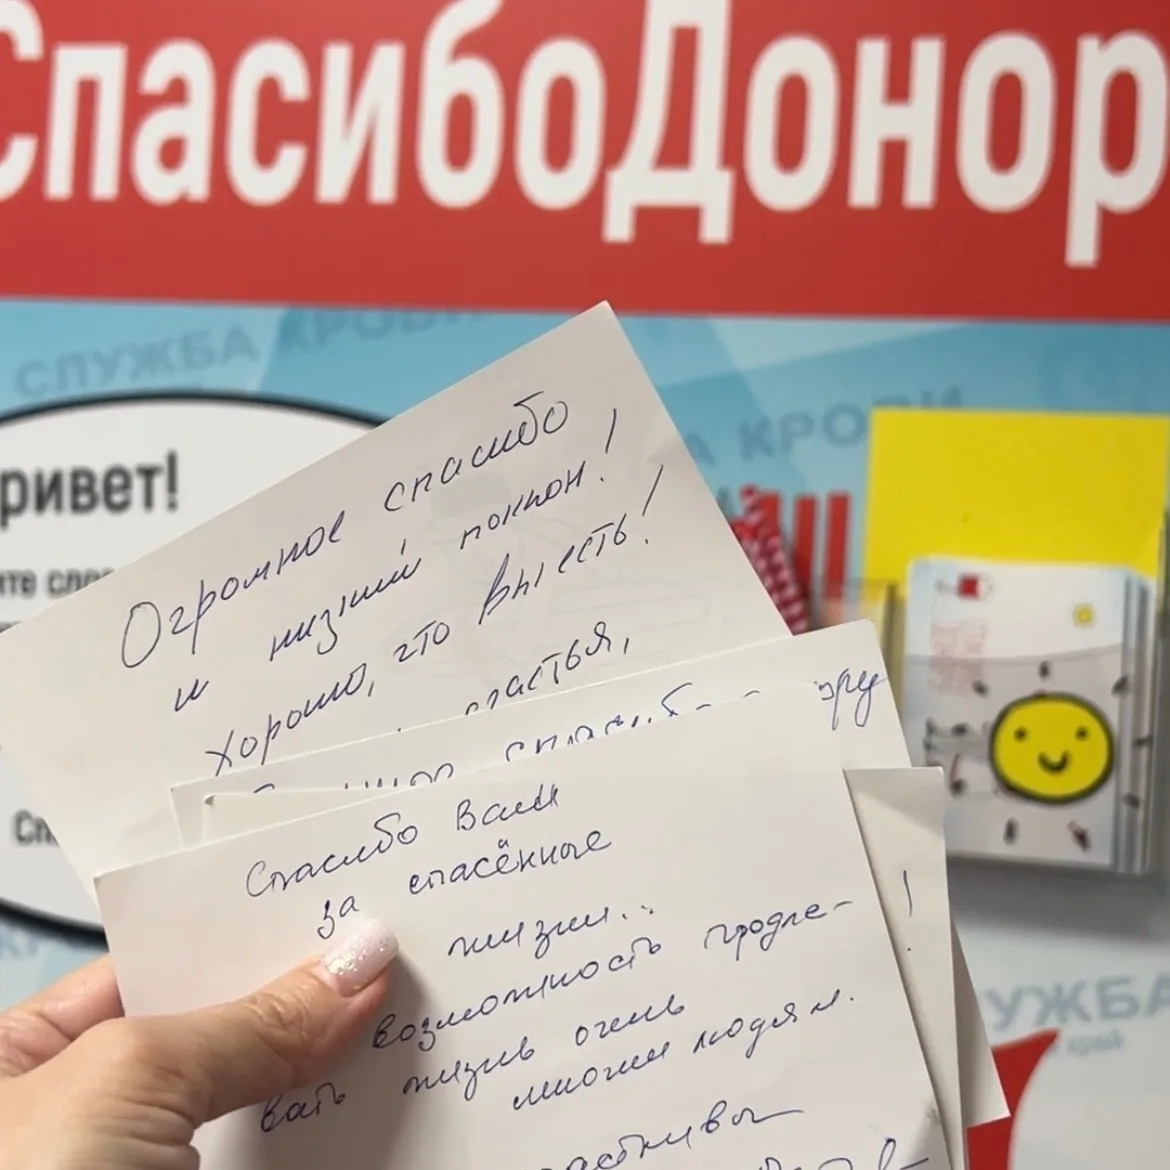 СпасибоДонор
СЛУЖБА КРОВИ
КРОВИ
ривет!
Огромное спасибо
и низкий поклон!
Хорошо, что Вы есть!
счастья,
спасибо
Спасибо Вам
за спасённые
жизни..
возможность продле-
вать жизнь очень
многим людям.
!
УЖБА
край